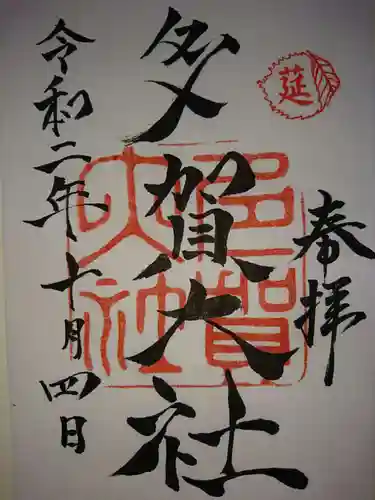 奉拝
延
多賀大社
多賀大社
令和二年十月四日